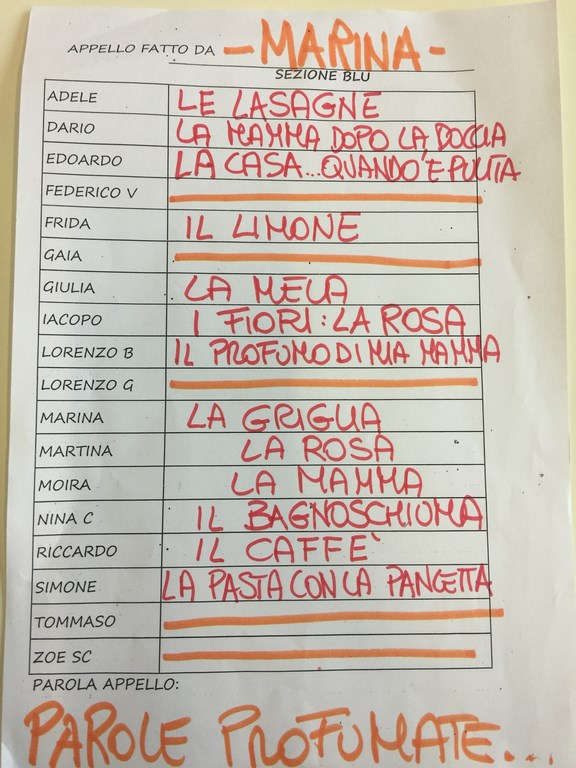 APPELLO FATTO DA - MARINA -
SEZIONE BLU
ADELE LE LASAGNE
DARIO LA MAMMA DOPO LA DOCCIA
EDOARDO LA CASA... QUANDO È PULITA
FEDERICO V
FRIDA IL LIMONE
GAIA
GIULIA LA MELA
IACOPO I FIORI: LA ROSA
LORENZO B IL PROFUMO DI MIA MAMMA
LORENZO G
MARINA LA GRIGLIA
MARTINA LA ROSA
MOIRA LA MAMMA
NINA C IL BAGNOSCHIUMA
RICCARDO IL CAFFE'
SIMONE LA PASTA CON LA PANCETTA
TOMMASO
ZOE SC
PAROLA APPELLO:
PAROLE PROFUMATE...